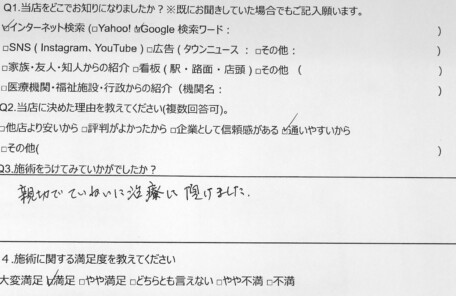 Q1.当店をどこでお知りになりましたか？※既にお聞きしていた場合でもご記入願います。
☑インターネット検索 (□Yahoo! ☑Google 検索ワード： )
□SNS ( Instagram、YouTube ) □広告 ( タウンニュース ： □その他： )
□家族・友人・知人からの紹介 □看板 ( 駅・路面・店頭 ) □その他 ( )
□医療機関・福祉施設・行政からの紹介 ( 機関名： )
Q2.当店に決めた理由を教えてください(複数回答可)。
□他店より安いから □評判がよかったから □企業として信頼感がある ☑通いやすいから
□その他( )
Q3.施術をうけてみていかがでしたか？
親切でていねいに治療に頂けました.
4.施術に関する満足度を教えてください
大変満足 ☑満足 □やや満足 □どちらとも言えない □やや不満 □不満